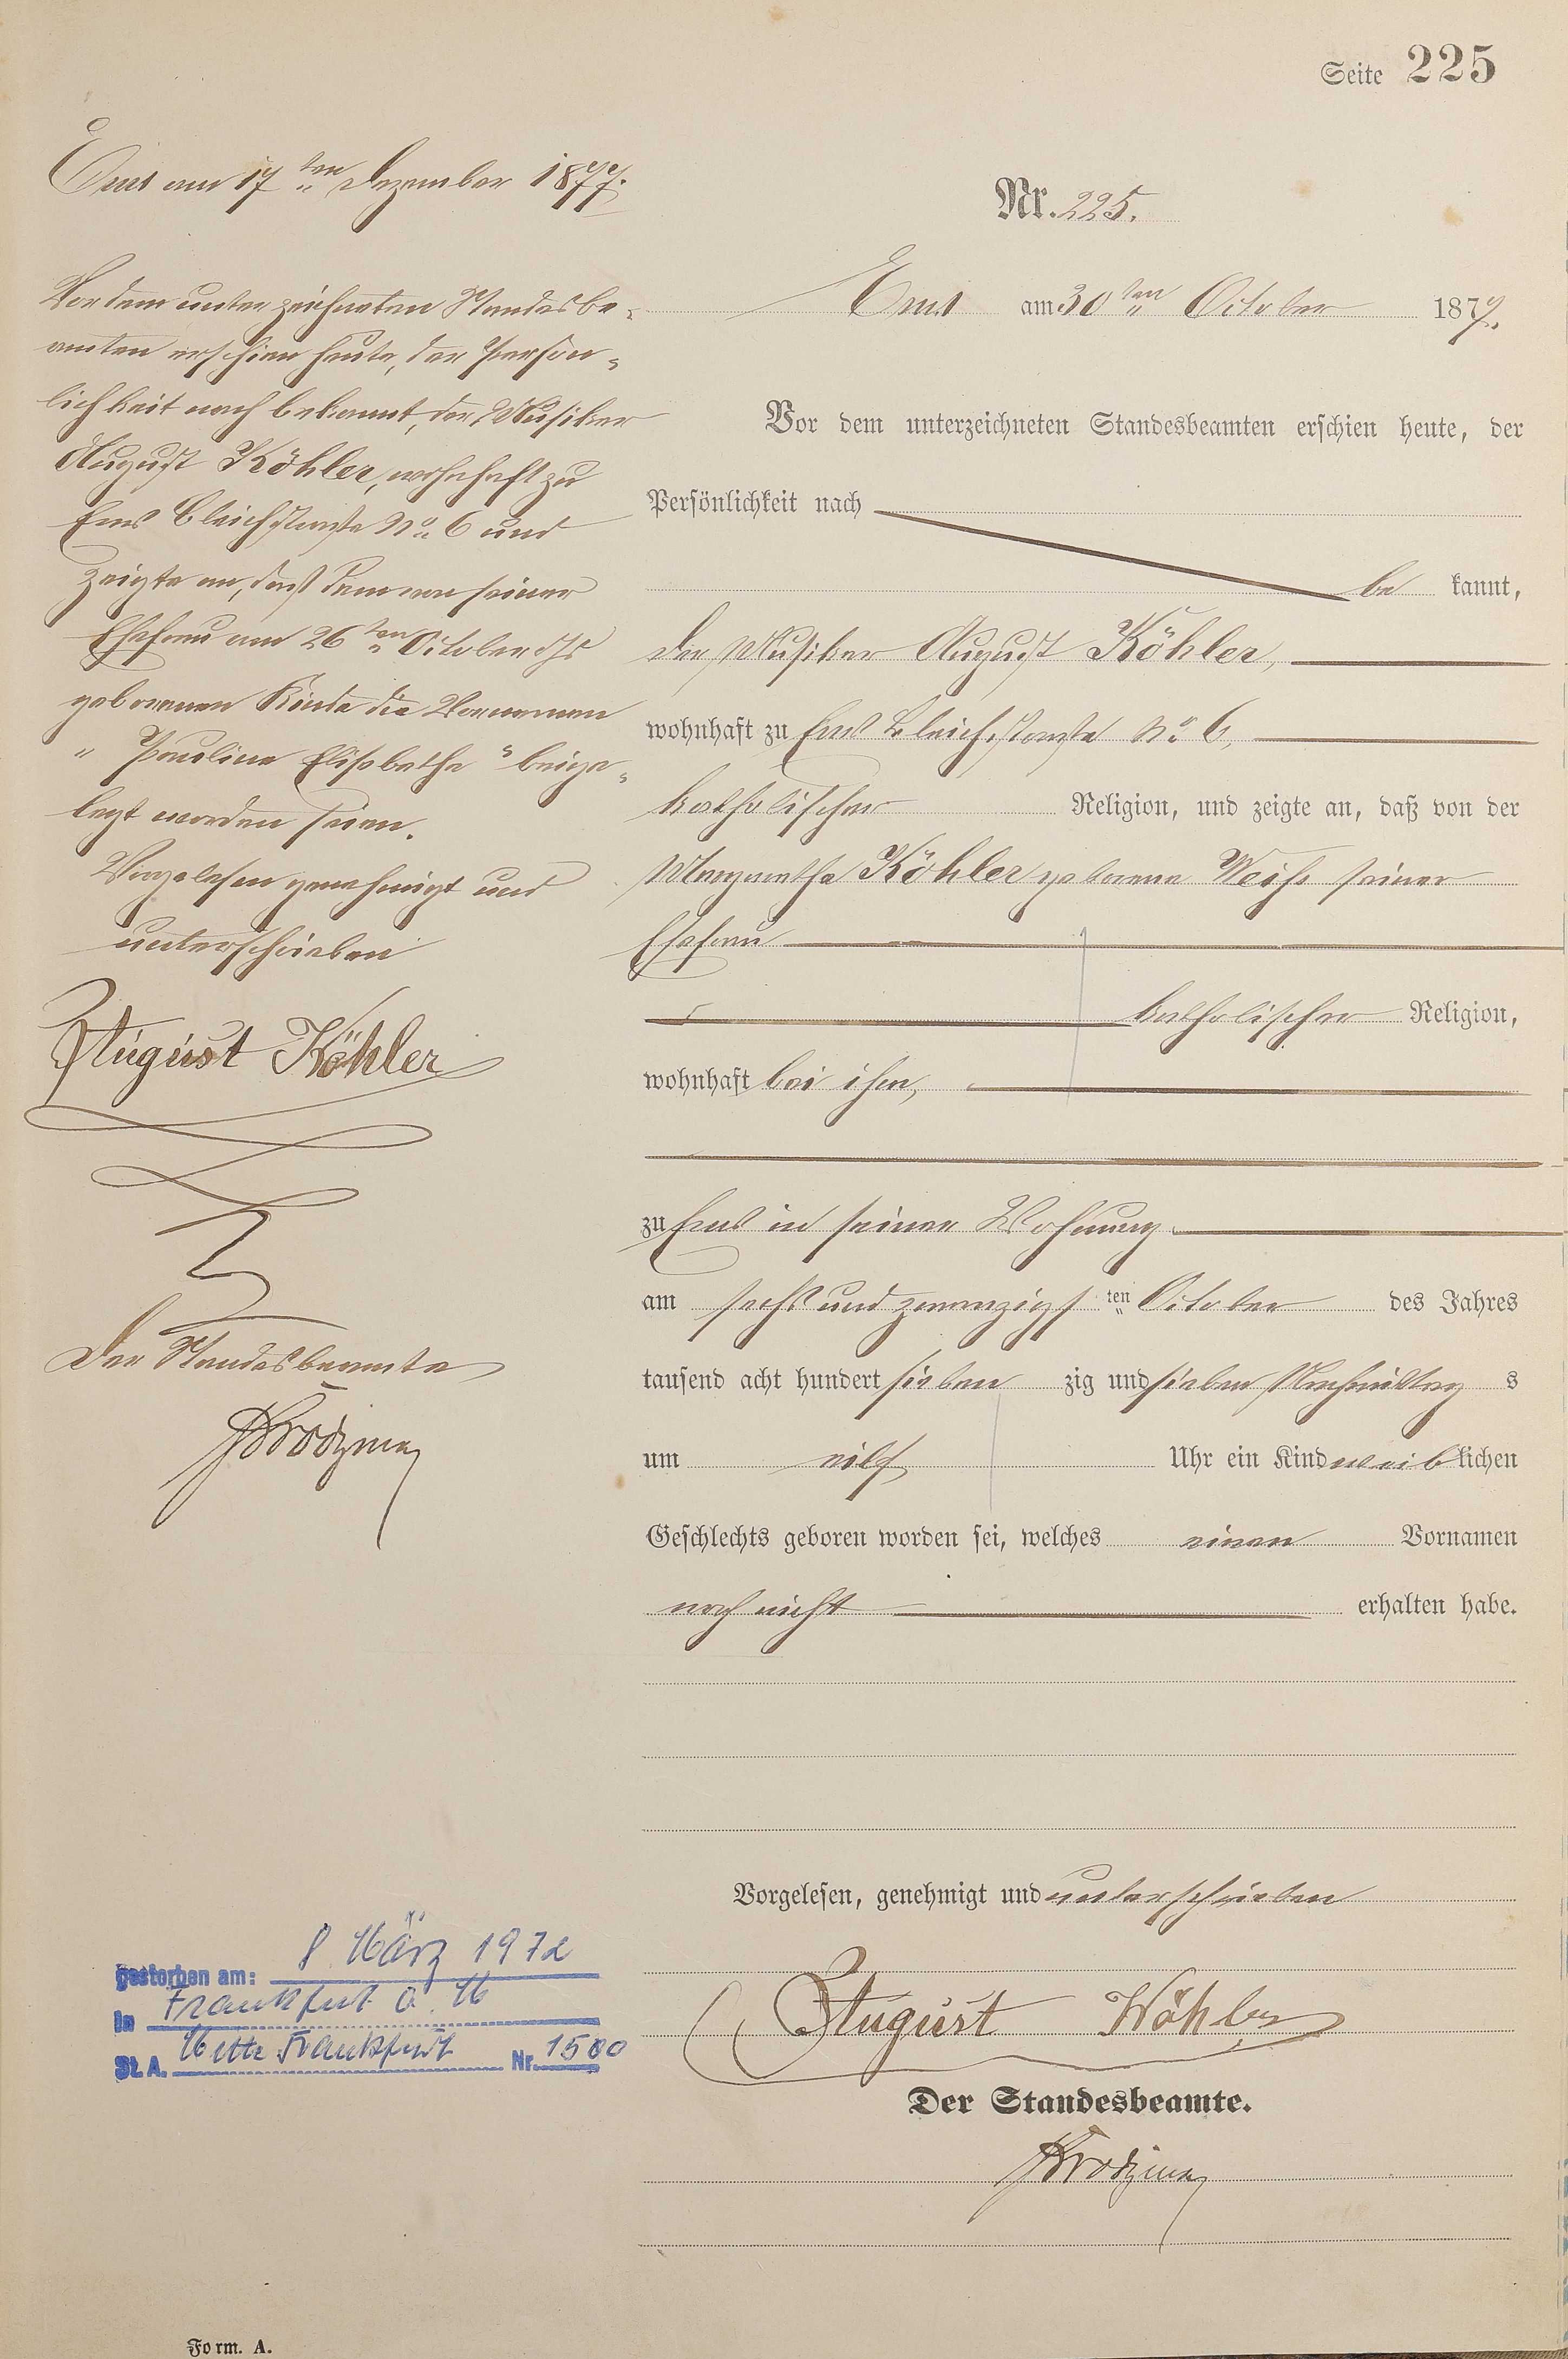 Seite 225
Ems am 17ten Dezember 1877.
Vor dem unterzeichneten Standesbe-
amten erschien heute, der Persön-
lichkeit nach bekannt, der Musiker
August Köhler, wohnhaft zu
Ems Bleichstraße No 6 und
zeigte an, daß dem von seiner
Ehefrau am 26ten October
geborenen Kinde die Vornamen
"Pauline Elisabetha" beige-
legt worden seien.
Vorgelesen genehmigt und
unterschrieben
August Köhler
Der Standesbeamte
Nr. 225.
Ems am 30ten October 1877.
Vor dem unterzeichneten Standesbeamten erschien heute, der
Persönlichkeit nach
be kannt,
der Musiker August Köhler,
wohnhaft zu Ems Bleichstraße No 6,
katholischer Religion, und zeigte an, daß von der
Margaretha Köhler geborene Weiß seiner
Ehefrau
katholischer Religion,
wohnhaft bei ihm,
zu Ems in seiner Wohnung
am sechs und zwanzigsten October des Jahres
tausend acht hundert sieben zig und sieben Nachmittag s
um eilf Uhr ein Kind weib lichen
Geschlechts geboren worden sei, welches einen Vornamen
noch nicht erhalten habe.
Vorgelesen, genehmigt und unterschrieben
August Köhler
Der Standesbeamte.
gestorben am: 8 März 1972
in Frankfurt a. M
St. A. Mitte Frankfurt Nr. 1500
Form. A.